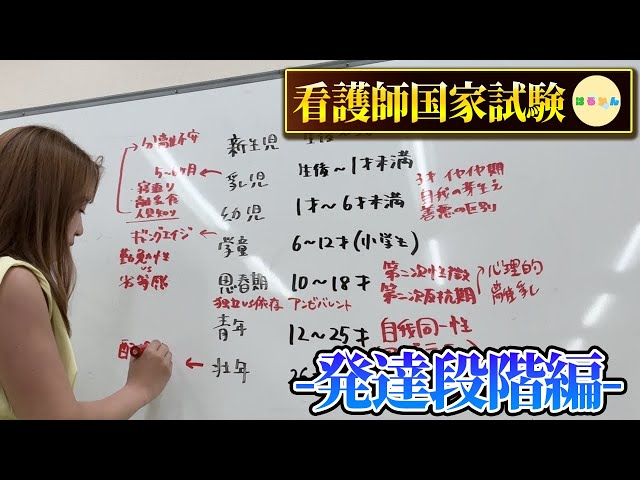 看護師国家試験
はるかん
分離不安
新生児
5~6ヶ月
寝返り
離乳食
人見知り
乳児
生後~1才未満
3才 イヤイヤ期
自我の芽生え
善悪の区別
幼児
1才~6才未満
ギャングエイジ
勤勉性
vs
劣等感
学童
6~12才(小学生)
思春期
10~18才
第二次性徴
第二次反抗期
心理的
離乳
独立vs依存
アンビバレント
青年
12~25才
自我同一性
壮年
-発達段階編-